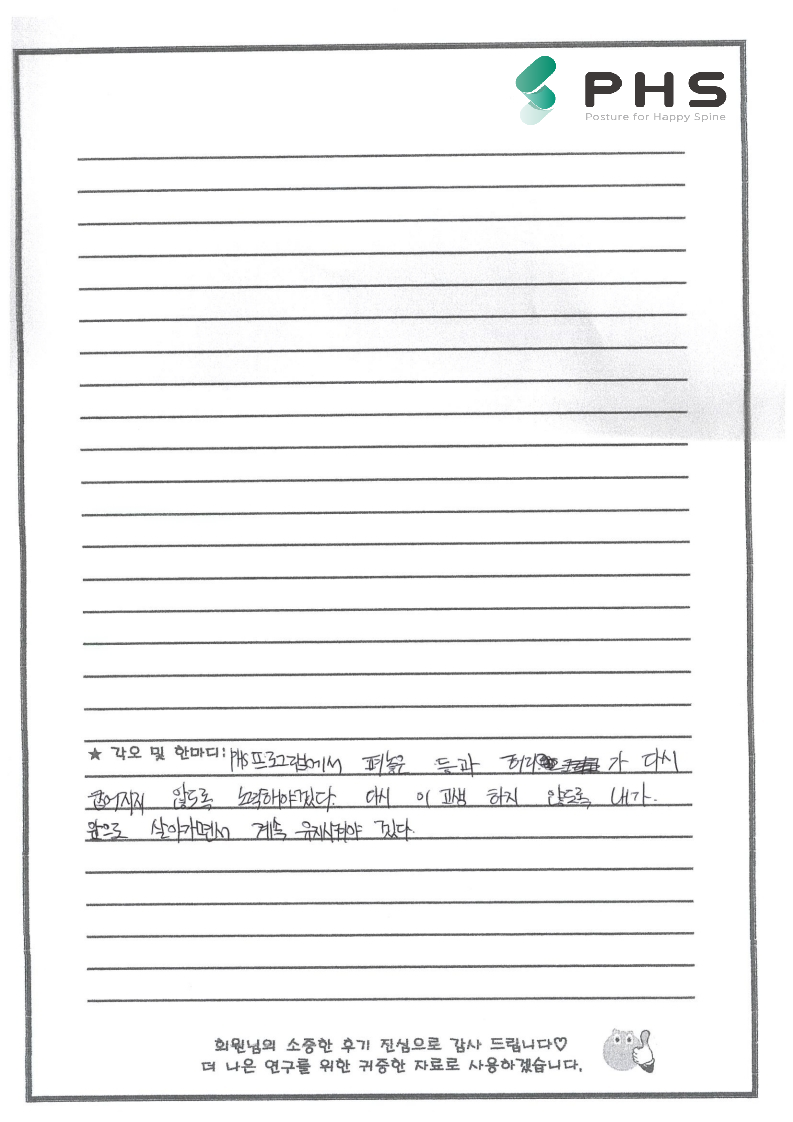 PHS
Posture for Happy Spine
★ 각오 및 한마디: PHS프로그램에서 펴놓은 등과 허리가 다시
굽어지지 않도록 노력해야겠다. 다시 이 고생 하지 않도록 내가.
앞으로 살아가면서 계속 유지시켜야 겠다.
회원님의 소중한 후기 진심으로 감사 드립니다♡
더 나은 연구를 위한 귀중한 자료로 사용하겠습니다.